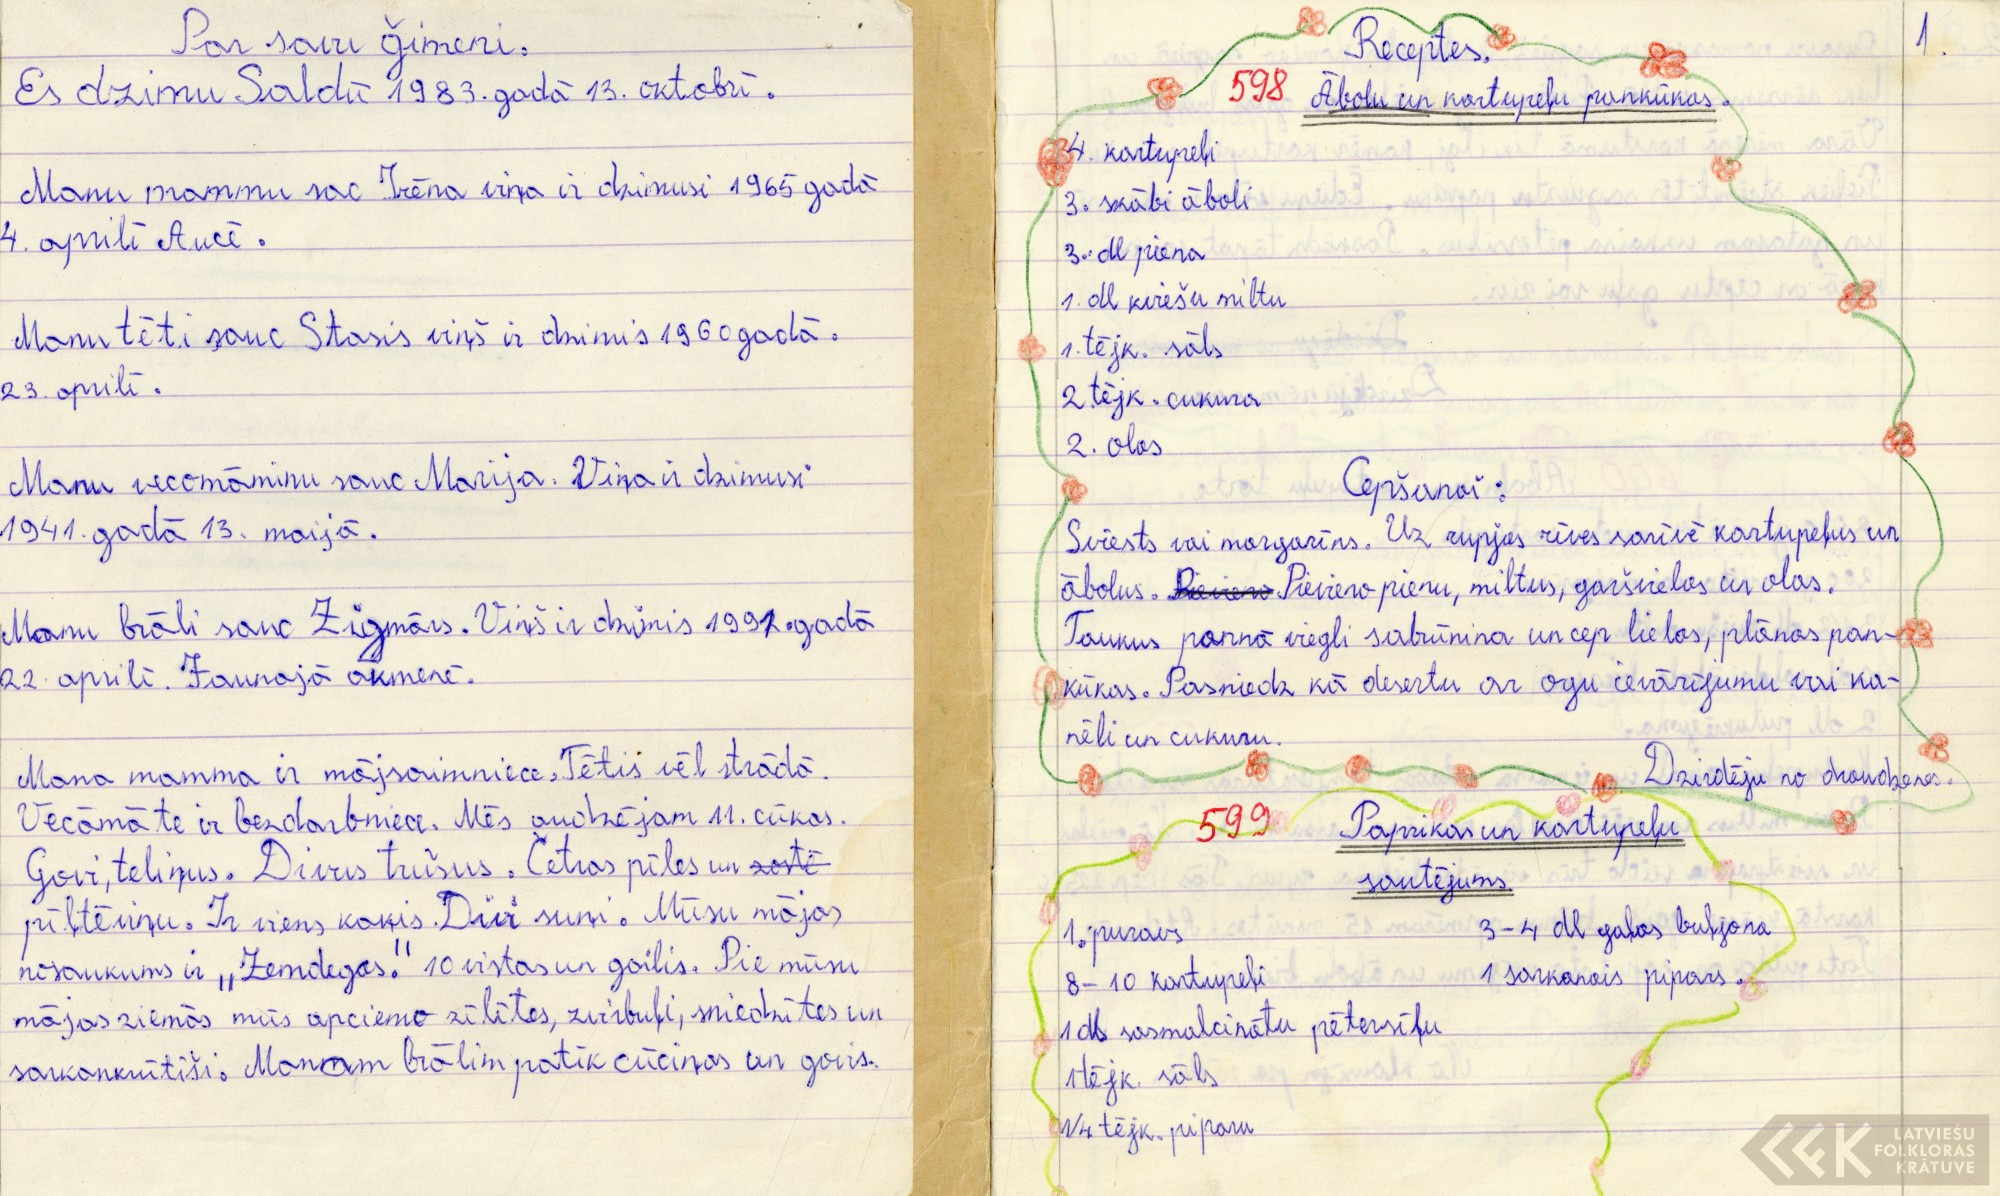 Par savu ģimeni.
Es dzimu Saldū 1983. gadā 13. oktobrī.
Manu mammu sac Irēna viņa ir dzimusi 1965 gadā
4. aprilī Aucē.
Manu tēti sauc Stasis viņš ir dzimis 1960 gadā.
23. aprilī.
Manu vecomāmiņu sauc Marija. Viņa ir dzimusi
1941. gadā 13. maijā.
Manu brāli sauc Zigmārs. Viņš ir dzimis 1991. gadā
22. aprilī. Jaunajā akmenē.
Mana mamma ir mājsaimniece. Tētis vēl strādā.
Vecāmāte ir bezdarbniece. Mēs audzējam 11. cūkas.
Govi, teliņus. Divus trušus. Četras pīles un
pīļtēviņu. Ir viens kaķis. Divi suņi. Mūsu mājas
nosaukums ir „Zemdegas." 10 vistas un gailis. Pie mūsu
mājas ziemās mūs apciemo zīlītes, zvirbuļi, sniedzītes un
sarkankrūtīši. Manam brālim patīk cūciņas un govis.
1.
Receptes.
598 Ābolu un kartupeļu pankūkas.
4. kartupeļi
3. skābi āboli
3. dl piena
1. dl kviešu miltu
1. tējk. sāls
2 tējk. cukura
2. olas
Cepšanai:
Sviests vai margarīns. Uz rupjās rīves sarīvē kartupeļus un
ābolus. Pievieno Pievieno pienu, miltus, garšvielas un olas.
Taukus pannā viegli sabrūnina un cep lielas, plānas pan-
kūkas. Pasniedz kā desertu ar ogu ievārījumu vai ka-
nēli un cukuru.
Dzirdēju no draudzenes.
599 Paprikas un kartupeļu
sautējums
1. puravs 3-4 dl gaļas buljona
8-10 kartupeļi 1 sarkanais pipars.
1 dl sasmalcinātu pētersīļu
1 tējk. sāls
1/4 tējk. piparu
LATVIEŠU
FOLKLORAS
KRĀTUVE